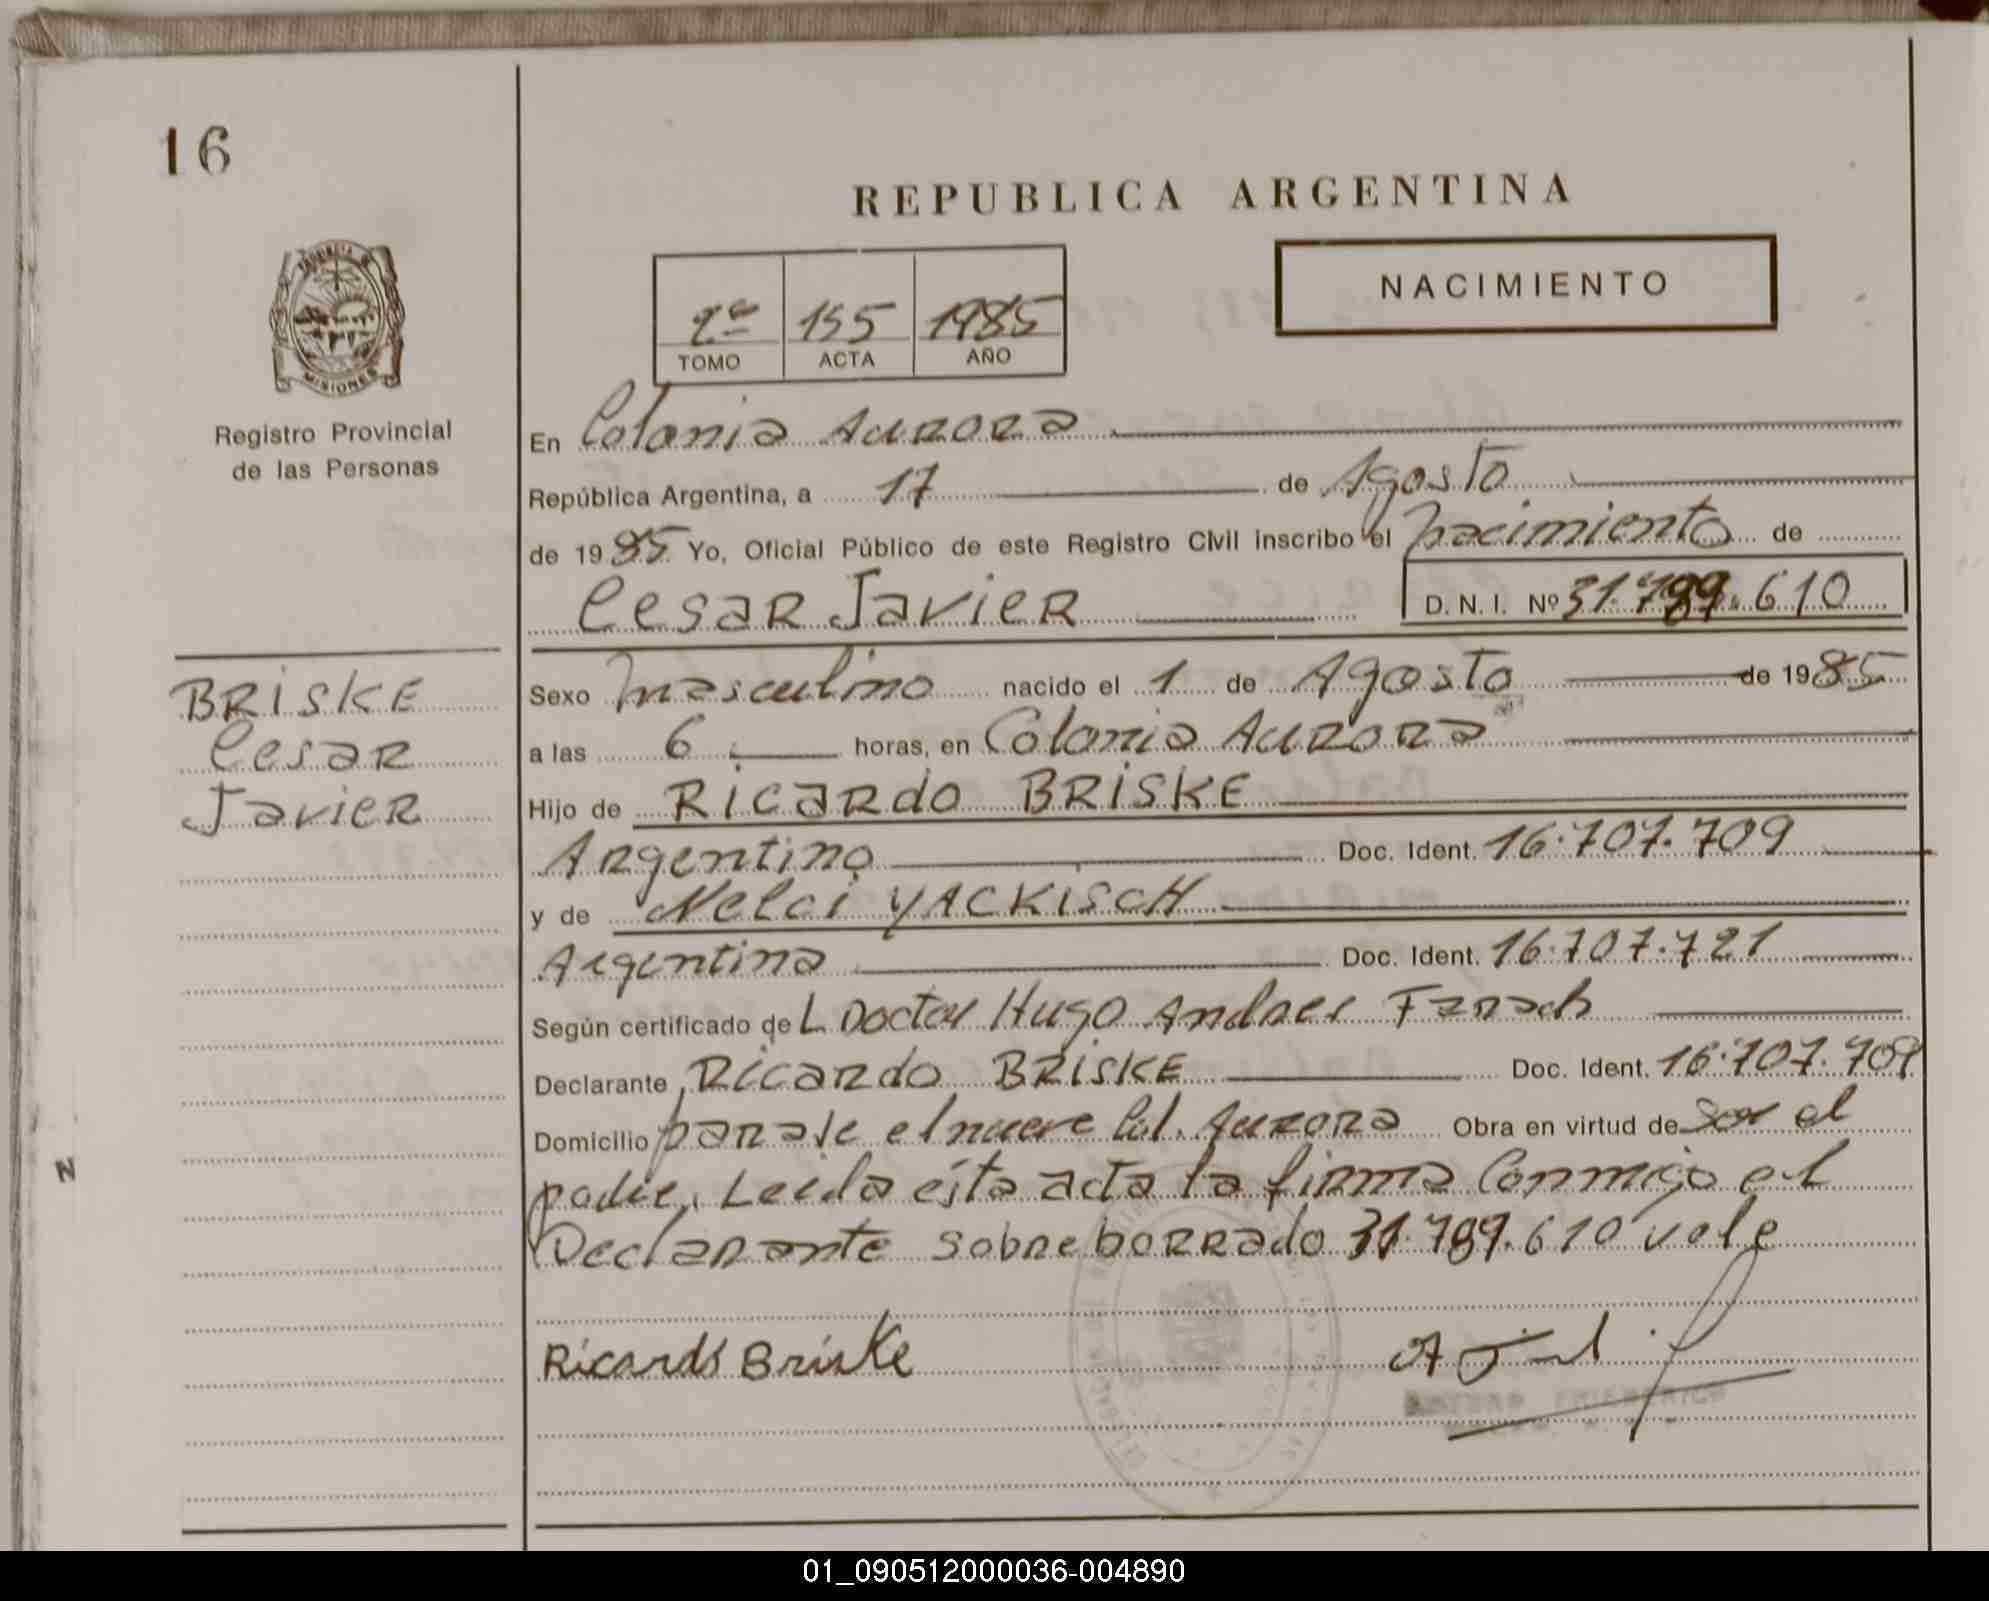 16
REPUBLICA ARGENTINA
NACIMIENTO
2º 155 1985
TOMO ACTA AÑO
MISIONES
Registro Provincial
de las Personas
En Colonia Aurora
República Argentina, a 17 de Agosto
de 1985 Yo, Oficial Público de este Registro Civil inscribo el nacimiento de
Cesar Javier D. N. I. Nº 31.789.610
BRISKE
Cesar
Javier
Sexo masculino nacido el 1 de Agosto de 1985
a las 6 horas, en Colonia Aurora
Hijo de Ricardo BRISKE
Argentino Doc. Ident. 16.707.709
y de Nelci YACKISCH
Argentina Doc. Ident. 16.707.721
Según certificado deL Doctor Hugo Andres Farach
Declarante Ricardo BRISKE Doc. Ident. 16.707.709
Domicilio paraje el nueve Col. Aurora Obra en virtud de ser el
padre. Leida ésta acta la firma Conmigo el
Declarante sobreborrado 31.789.610 vale
Ricardo Briske
N
01_090512000036-004890